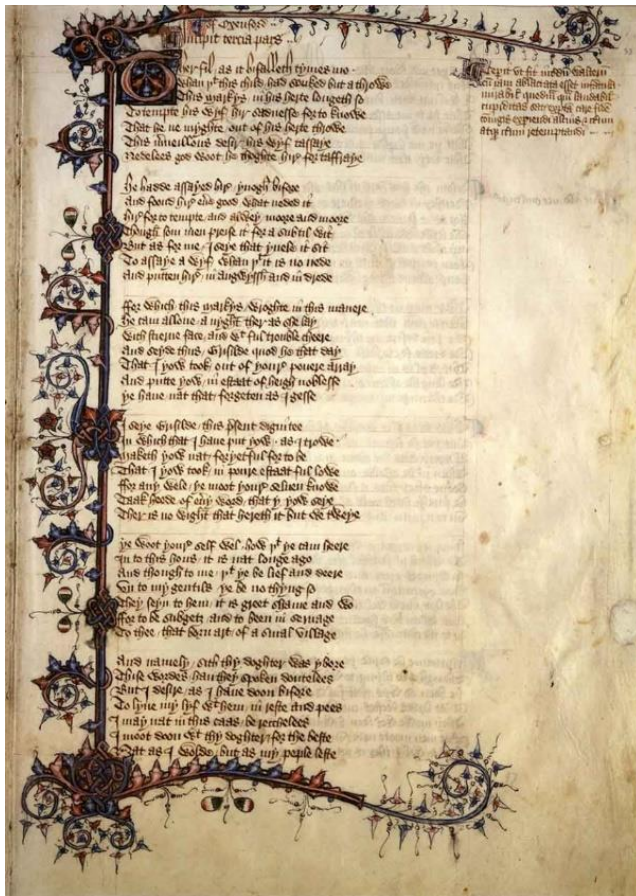 of Oxenford
Incipit tercia pars
Ther fil as it bifalleth tymes mo
Whan þt this child had souked but a throwe
This markys in his herte longeth so
To tempte his wyf hir sadnesse for to knowe
That he ne myghte out of his herte throwe
This merueillous desir his wyf tassaye
Nedelees god woot he thoghte hir for taffraye
He hadde assayed hir ynogh bifore
And foond hir euere good what neded it
Hir for to tempte and alwey moore and moore
Though som men preise it for a subtil wit
But as for me I seye that yuele it sit
To assaye a wyf whan þt it is no nede
And putten hir in angwyssh and in drede
ffor which this markys wroghte in this manere
He cam allone a nyght ther as she lay
With stierne face and wt ful trouble cheere
And seyde thus Grisilde quod he that day
That I yow took out of youre pouere array
And putte yow in estaat of heigh noblesse
Ye haue nat that forgeten as I gesse
I seye Grisilde this psent dignitee
In which that I haue put yow as I trowe
Maketh yow nat foryetful for to be
That I yow took in poure estaat ful lowe
For any wele ye moot youre seluen knowe
Taak heede of euy word that y yow seye
Ther is no wight that hereth it but we tweye
Ye woot youre self wel how þt ye cam heere
In to this hous it is nat longe ago
And though to me þt ye be lief and deere
Vn to my gentils ye be no thyng so
They seyn to hem it is greet shame and wo
ffor to be subgetz and to been in seruage
To thee that born art of a smal village
And namely sith thy doghter was ybore
Thise wordes han they spoken doutelees
But I desire as I haue doon bifore
To lyue my lyf wt hem in reste and pees
I may nat in this caas be recchelees
I moot doon wt thy doghter for the beste
Nat as I wolde but as my peple leste